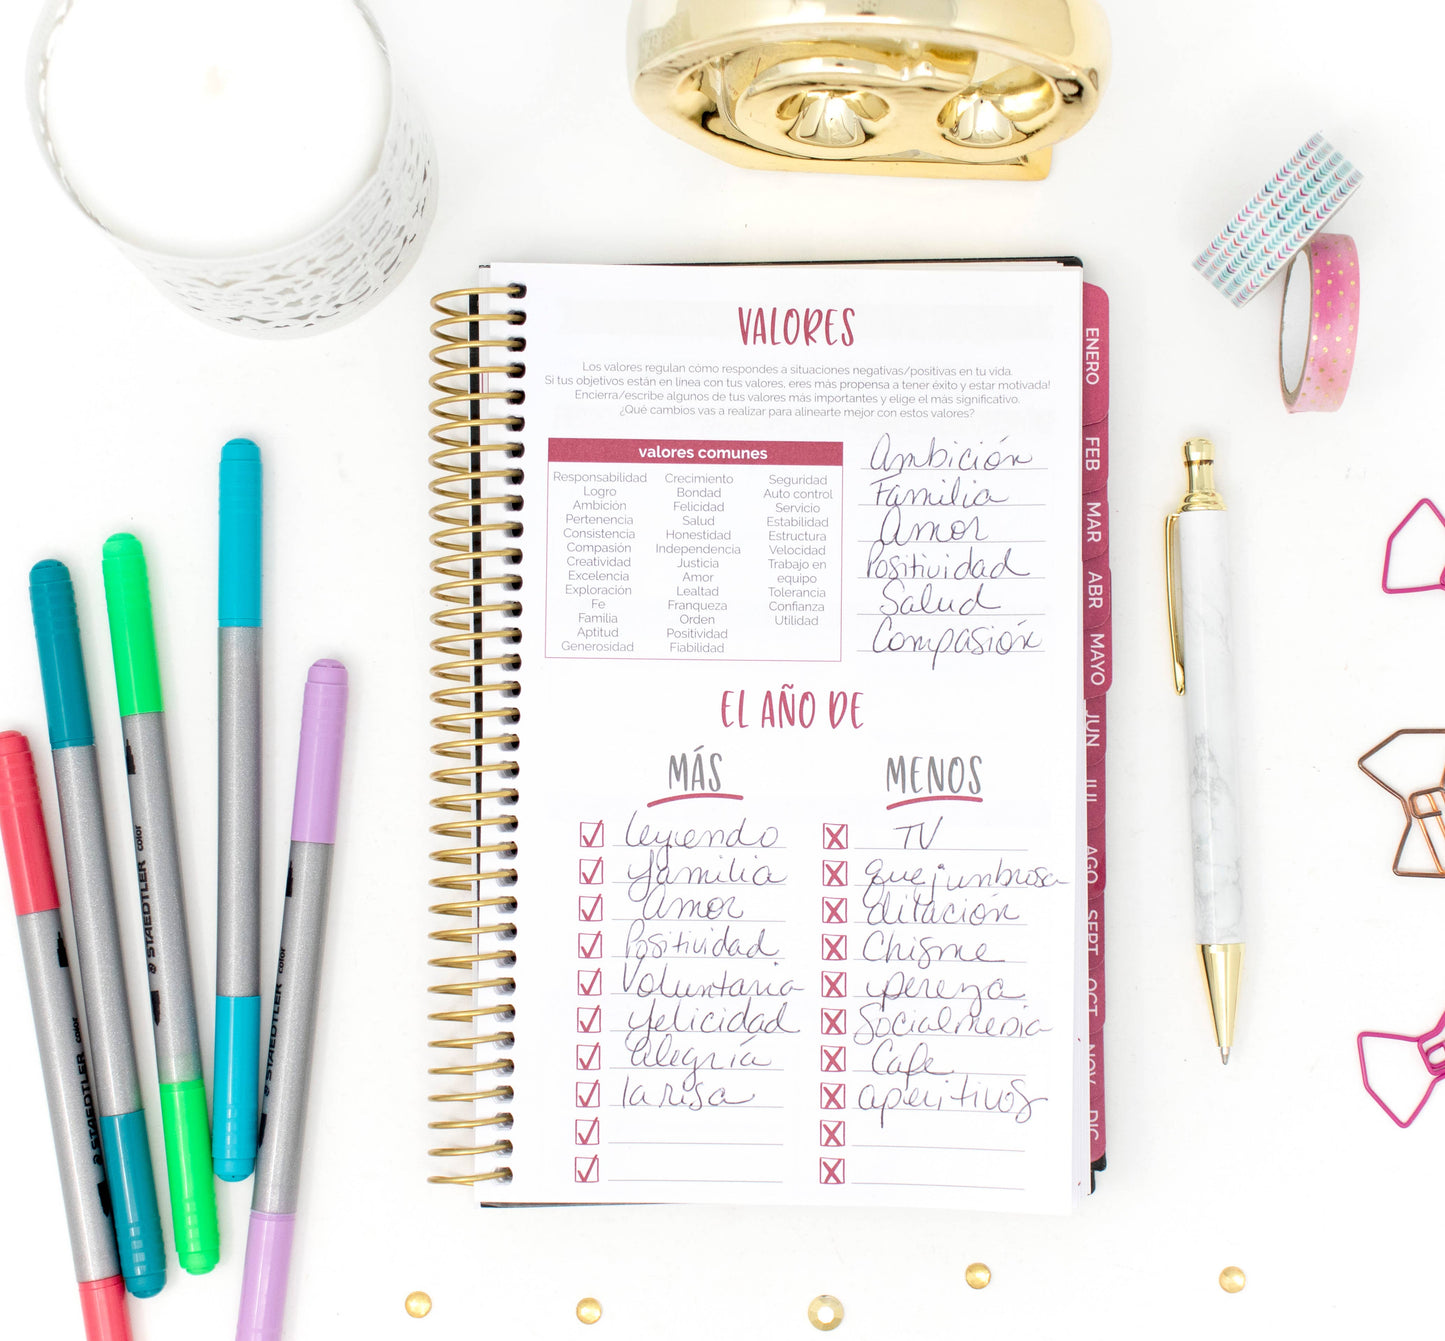 VALORES
Los valores regulan cómo respondes a situaciones negativas/positivas en tu vida.
Si tus objetivos están en línea con tus valores, eres más propensa a tener éxito y estar motivada!
Encierra/escribe algunos de tus valores más importantes y elige el más significativo.
¿Qué cambios vas a realizar para alinearte mejor con estos valores?
valores comunes
Responsabilidad
Logro
Ambición
Pertenencia
Consistencia
Compasión
Creatividad
Excelencia
Exploración
Fe
Familia
Aptitud
Generosidad
Crecimiento
Bondad
Felicidad
Salud
Honestidad
Independencia
Justicia
Amor
Lealtad
Franqueza
Orden
Positividad
Fiabilidad
Seguridad
Auto control
Servicio
Estabilidad
Estructura
Velocidad
Trabajo en
equipo
Tolerancia
Confianza
Utilidad
Ambición
Familia
Amor
Positividad
Salud
Compasión
EL AÑO DE
MÁS
leyendo
familia
amor
Positividad
Voluntaria
felicidad
alegría
la risa
MENOS
TV
quejumbrosa
dilación
Chisme
pereza
Socialmedia
Cafe
aperitivos
ENERO
FEB
MAR
ABR
MAYO
JUN
JUL
AGO
SEPT
OCT
NOV
DIC
STAEDTLER color
STAEDTLER color
STAEDTLER color